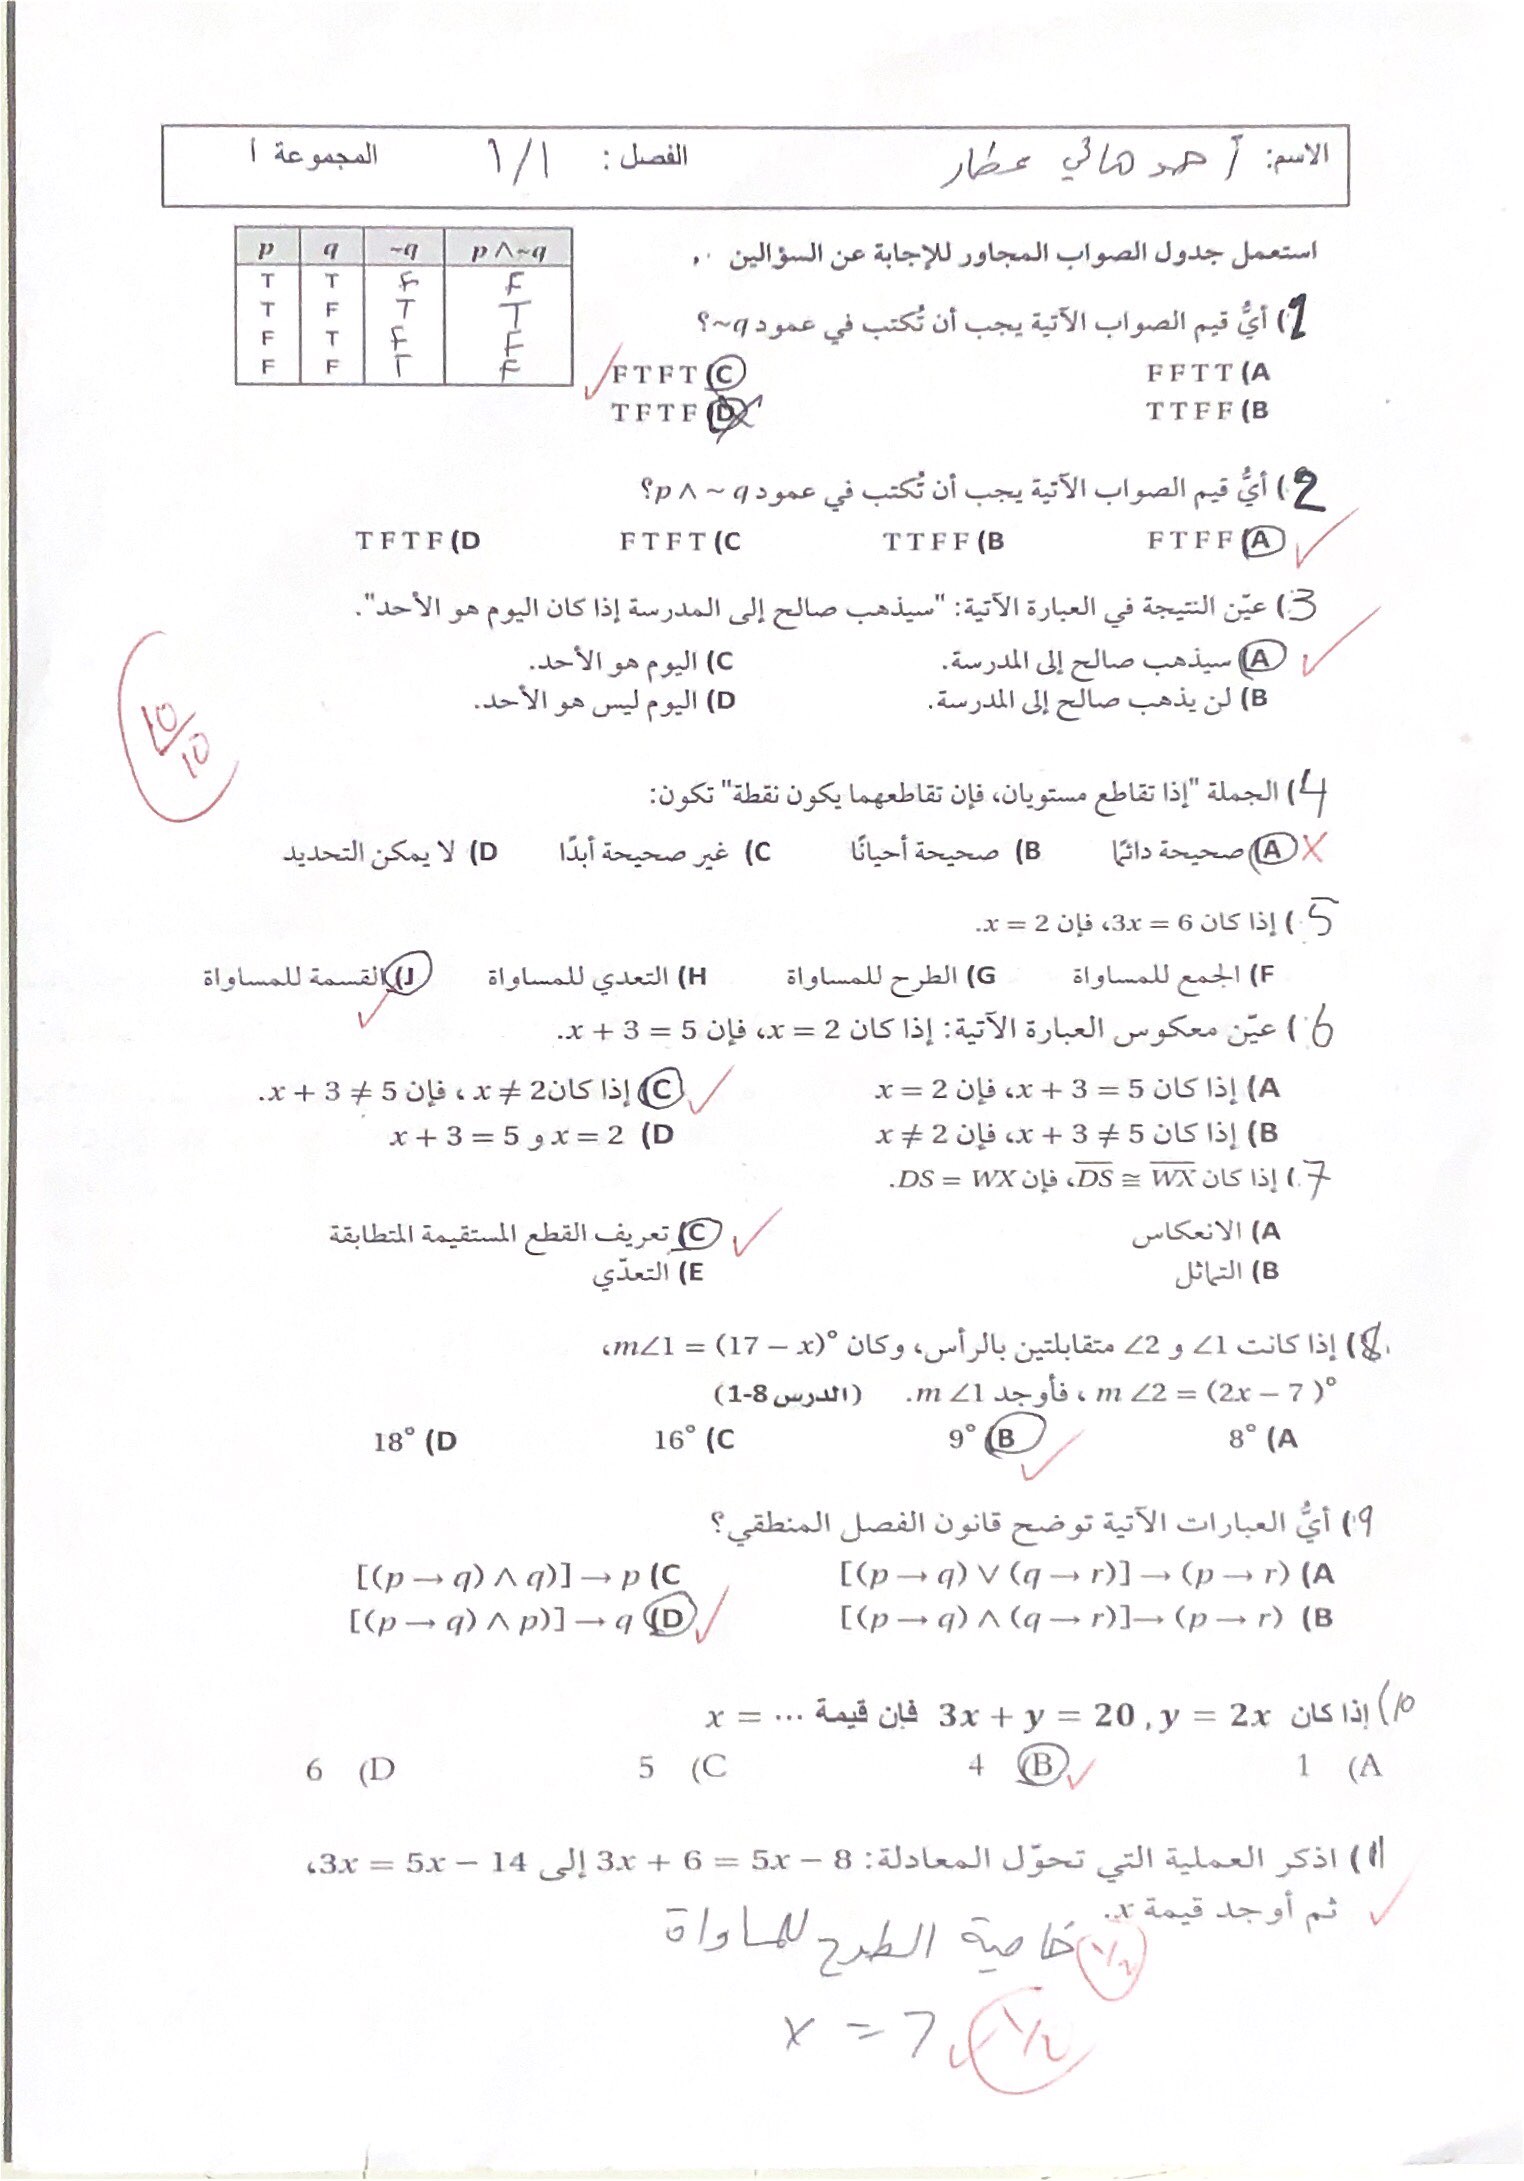 الاسم: أحمد هاني عطار الفصل: ١/١ المجموعة أ
استعمل جدول الصواب المجاور للإجابة عن السؤالين
p q ~q p ∧ ~q
T T F F
T F T T
F T F F
F F T F
1) أيُّ قيم الصواب الآتية يجب أن تُكتب في عمود ~q؟
A) F F T T C) F T F T
B) T T F F D) T F T F
2) أيُّ قيم الصواب الآتية يجب أن تُكتب في عمود p ∧ ~q؟
A) F T F F B) T T F F C) F T F T D) T F T F
3) عيّن النتيجة في العبارة الآتية: "سيذهب صالح إلى المدرسة إذا كان اليوم هو الأحد".
A) سيذهب صالح إلى المدرسة. C) اليوم هو الأحد.
B) لن يذهب صالح إلى المدرسة. D) اليوم ليس هو الأحد.
10/10
4) الجملة "إذا تقاطع مستويان، فإن تقاطعهما يكون نقطة" تكون:
A) صحيحة دائمًا B) صحيحة أحيانًا C) غير صحيحة أبدًا D) لا يمكن التحديد
5) إذا كان 3x = 6، فإن x = 2.
F) الجمع للمساواة G) الطرح للمساواة H) التعدي للمساواة J) القسمة للمساواة
6) عيّن معكوس العبارة الآتية: إذا كان x = 2، فإن x + 3 = 5.
A) إذا كان x + 3 = 5، فإن x = 2 C) إذا كان x ≠ 2، فإن x + 3 ≠ 5.
B) إذا كان x + 3 ≠ 5، فإن x ≠ 2 D) x = 2 و x + 3 = 5
7) إذا كان D̅S̅ ≅ W̅X̅، فإن DS = WX.
A) الانعكاس C) تعريف القطع المستقيمة المتطابقة
B) التماثل E) التعدّي
8) إذا كانت ∠1 و ∠2 متقابلتين بالرأس، وكان m∠1 = (17 − x)°،
m ∠2 = (2x − 7 )° ، فأوجد m ∠1. (الدرس 8-1)
A) 8° B) 9° C) 16° D) 18°
9) أيُّ العبارات الآتية توضح قانون الفصل المنطقي؟
A) [(p → q) ∨ (q → r)] → (p → r) C) [(p → q) ∧ q)] → p
B) [(p → q) ∧ (q → r)] → (p → r) D) [(p → q) ∧ p)] → q
10) إذا كان 3x + y = 20 , y = 2x فإن قيمة ... x =
A) 1 B) 4 C) 5 D) 6
11) اذكر العملية التي تحوّل المعادلة: 3x + 6 = 5x − 8 إلى 3x = 5x − 14،
ثم أوجد قيمة x.
خاصية الطرح للمساواة 1/2
x = 7 1/2